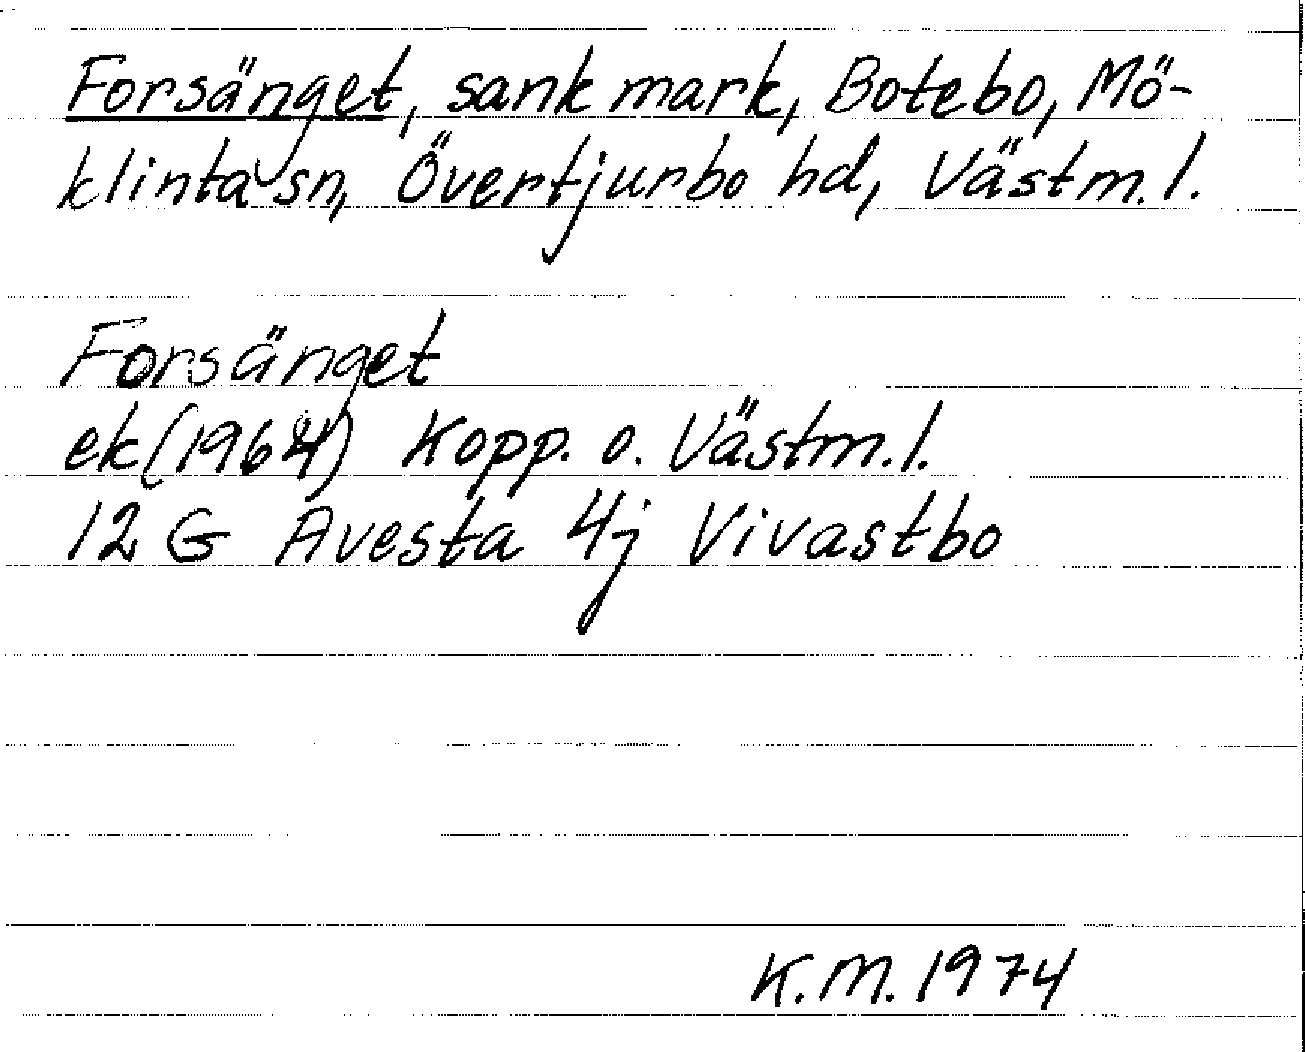 Forsänget, sank mark, Botebo, Mö-
klinta sn, Övertjurbo hd, Västm. l.
Forsänget
ek (1964) Kopp. o. Västm. l.
12 G Avesta 4j Vivastbo
K. M. 1974